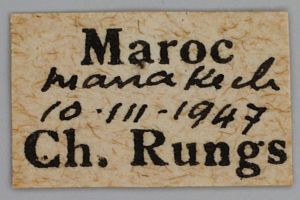 Maroc
Marrakech
10-III-1947
Ch. Rungs